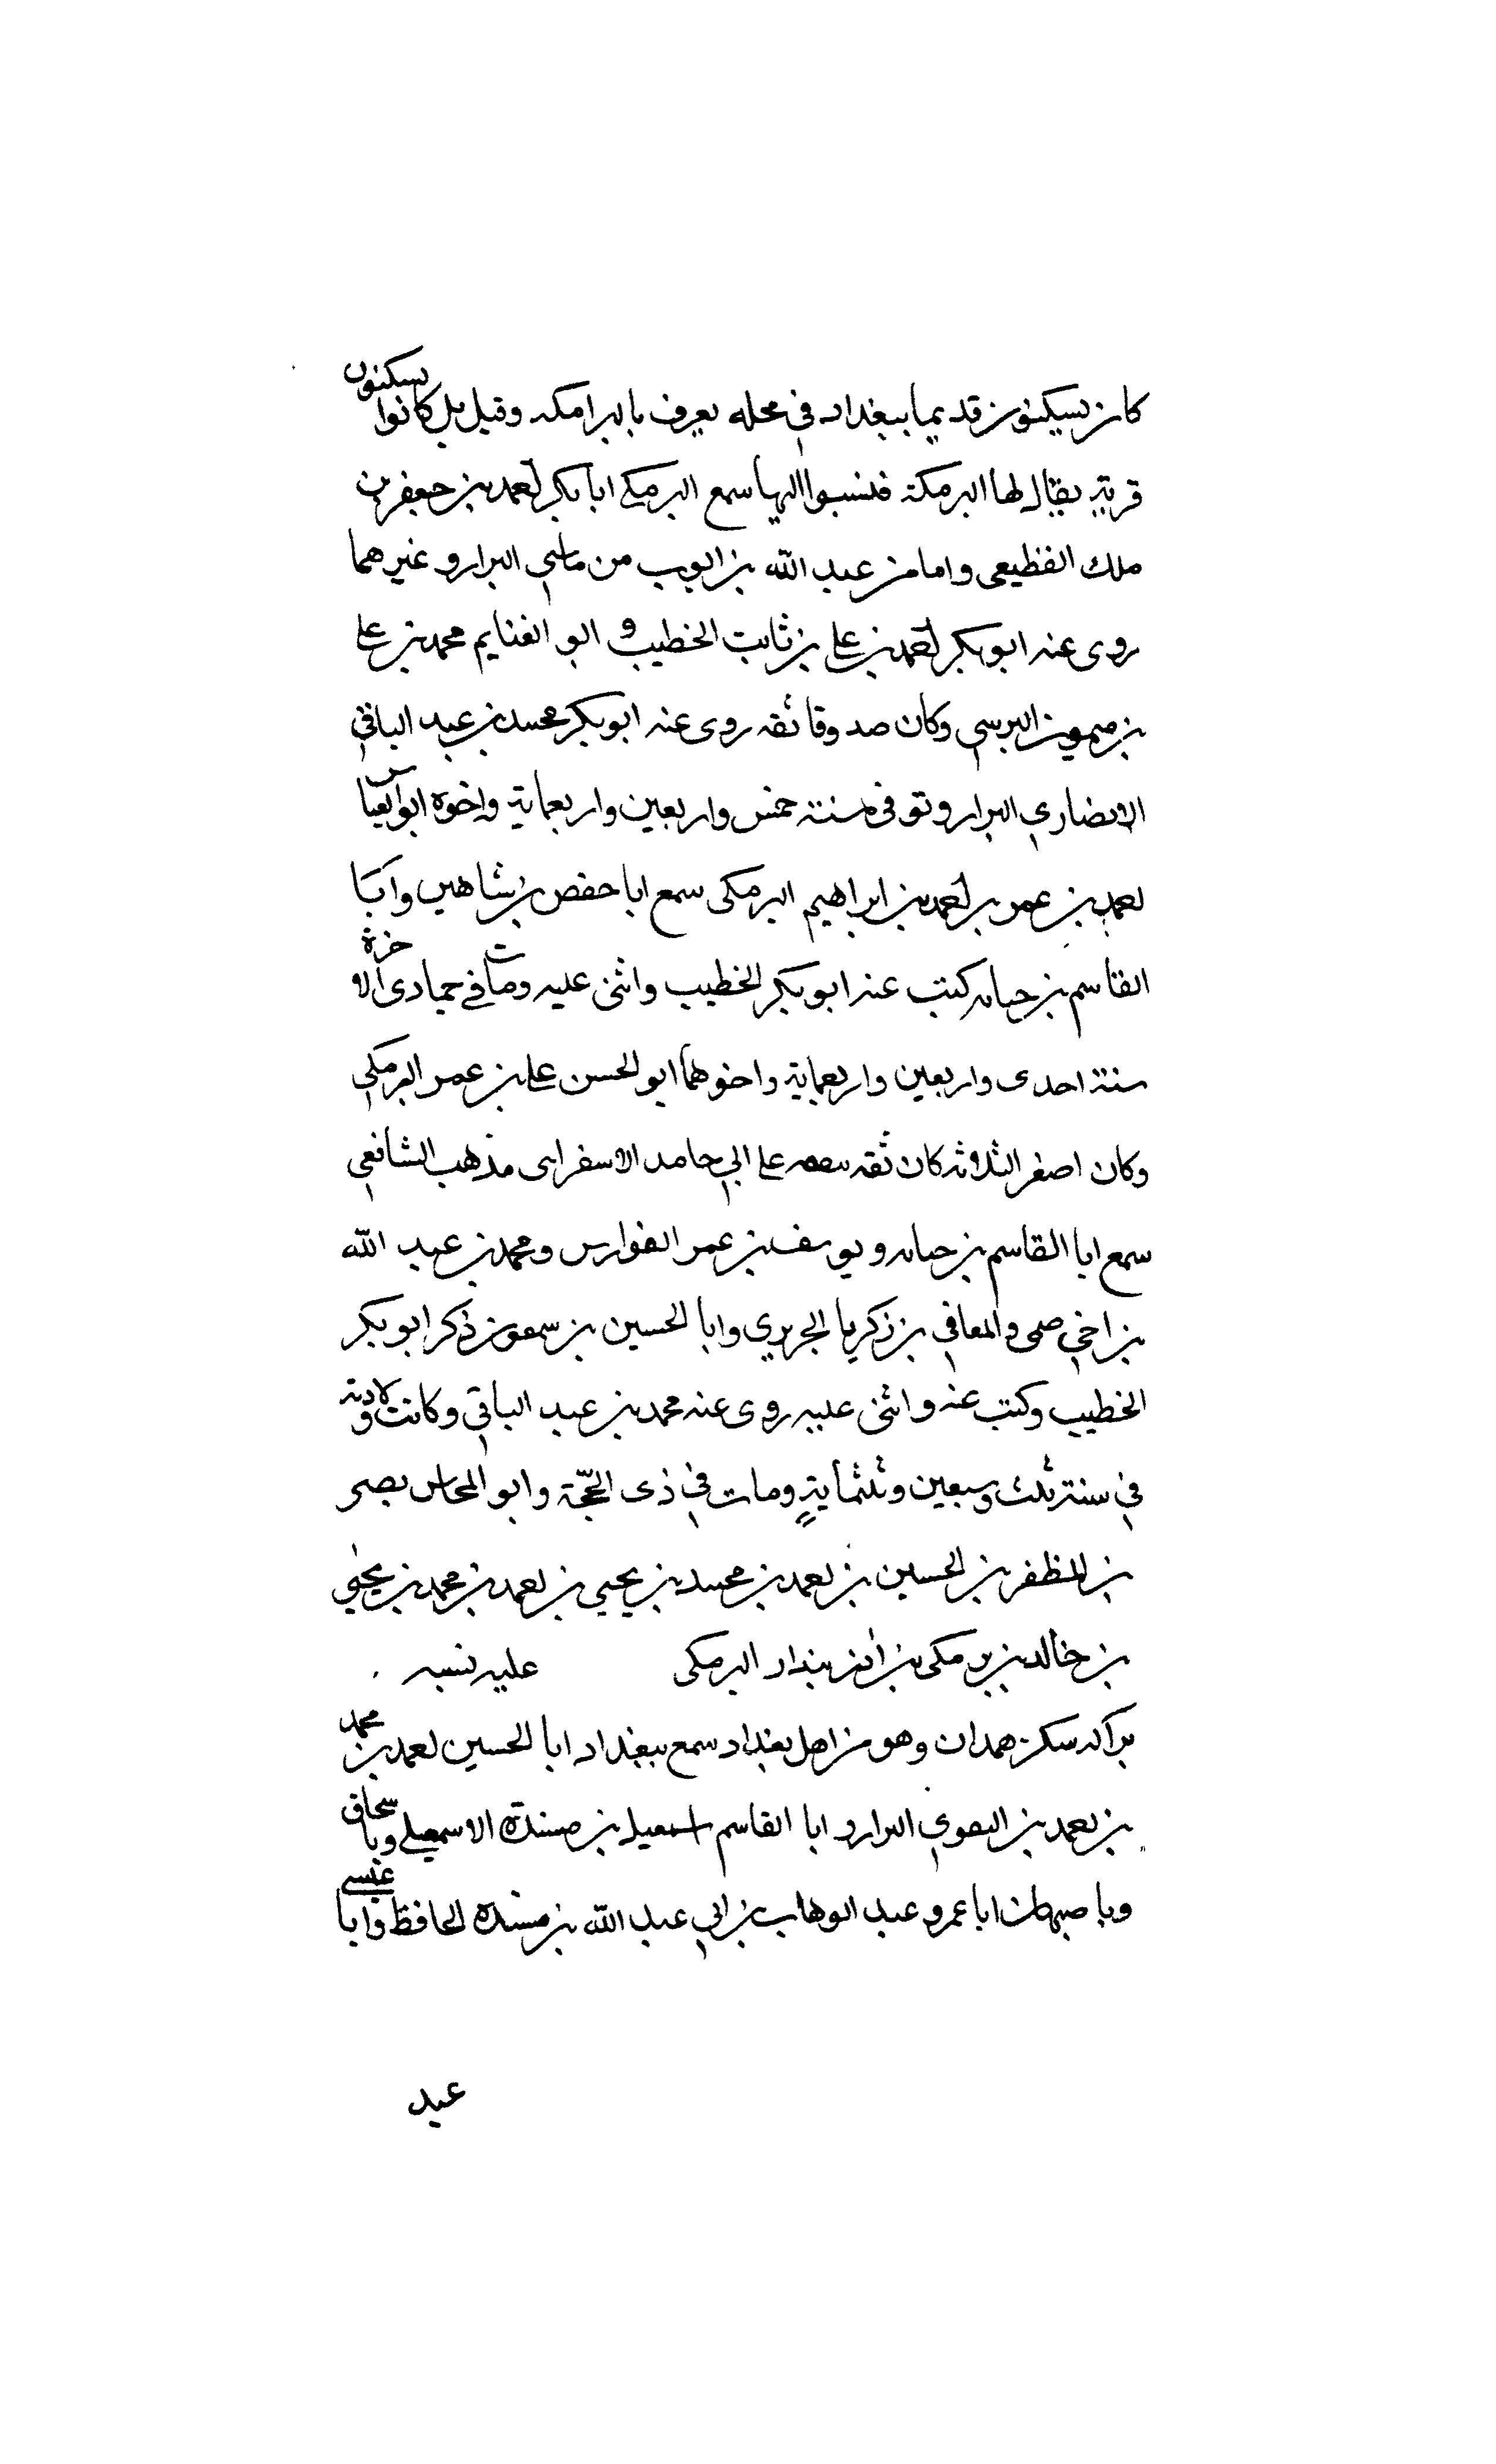 كان يسكنون قديما ببغداد في محله يعرف بالبرامكه وقيل بل كانوا يسكنون
قرية يقال لها البرمكة فنسبوا اليها سمع البرمكي ابا بكر احمد بن جعفر بن
ملك القطيعي واما من عبد الله بن ايوب من ماسي البزار وغيرهما
روى عنه ابو بكر احمد بن علي بن ثابت الخطيب و ابو الغنايم محمد بن علي
بن ميمون النرسي وكان صدوقا ثقه روى عنه ابو بكر محمد بن عبد الباقي
الانصاري البزار وتوفى في سنة خمس واربعين واربعماية واخوه ابو العباس
احمد بن عمر بن احمد بن ابراهيم البرمكى سمع ابا حفص بن شاهين وابا
القاسم بن حبابه كتب عنه ابو بكر الخطيب واثنى عليه ومات في جمادى الاخرة
سنة احدى واربعين واربعماية واخوهما ابو الحسن علي بن عمر البرمكي
وكان اصغر الثلاثه كان ثقه على ابي حامد الاسفراينى مذهب الشافعي
سمع ابا القاسم بن حبابه ويوسف بن عمر القواس ومحمد بن عبد الله
بن اخي ميمى والمعافي بن زكريا الجريري وابا الحسين بن سمعون ذكر ابو بكر
الخطيب وكتب عنه واثنى عليه روى عنه محمد بن عبد الباقي وكانت ولادته
في سنة ثلث وسبعين وثلثماية ومات في ذى الحجة وابو المحاسن نصر
بن المظفر بن الحسين بن احمد بن محمد بن يحيي بن احمد بن محمد بن يحيي
بن خالد بن برمكى بن بندار البرمكى عليه نسبه
سكن همدان وهو من اهل بغداد سمع ببغداد ابا الحسين احمد بن محمد
بن احمد بن البزار و ابا القاسم اسمعيل بن مسعدة الاسمعيلي
وباصبهان ابا عمرو عبد الوهاب بن ابي عبد الله بن منده الحافظ وابا عيسى
عبد